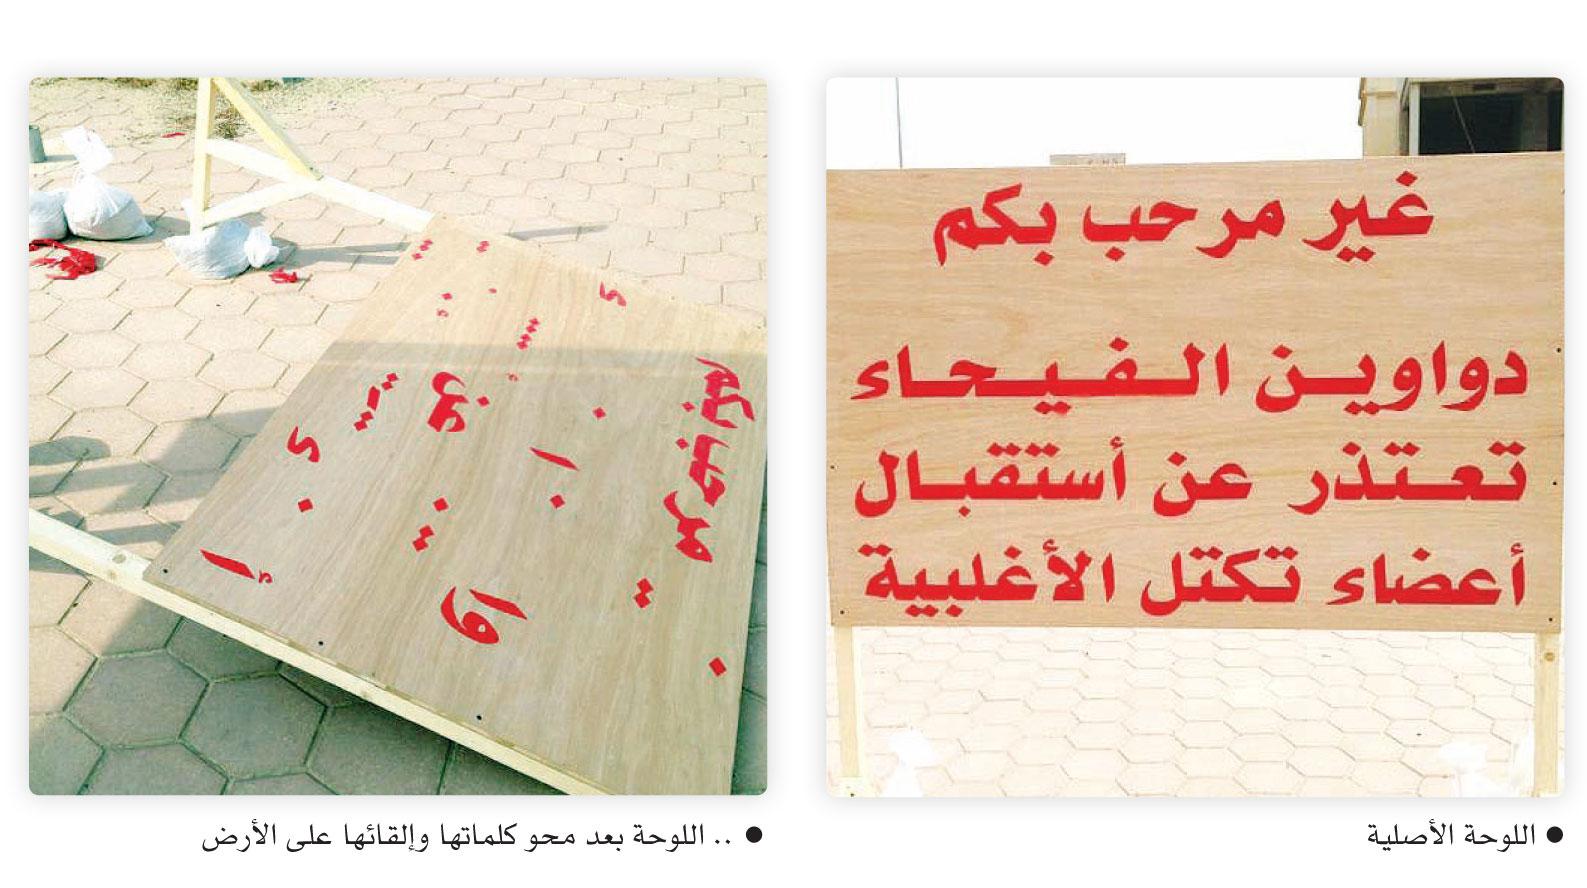 غير مرحب بكم
دواوين الفيحاء
تعتذر عن أستقبال
أعضاء تكتل الأغلبية
● اللوحة الأصلية
مرحب بكم
● .. اللوحة بعد محو كلماتها وإلقائها على الأرض